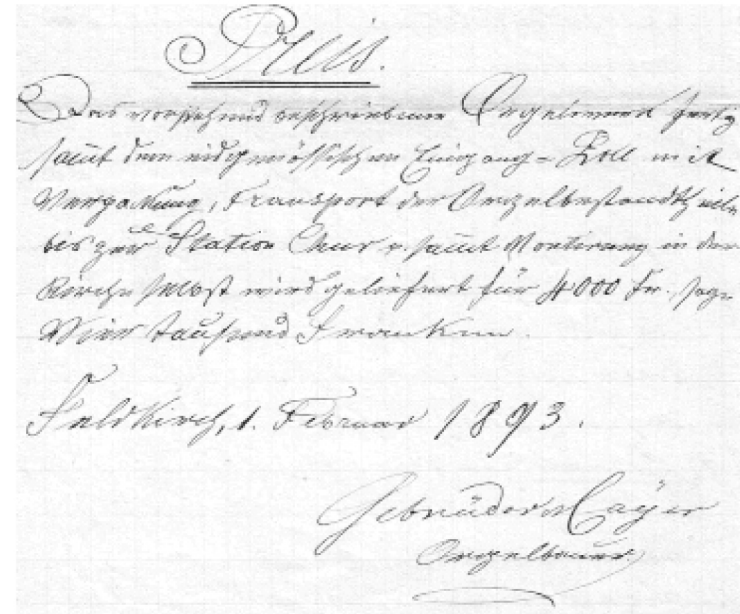 Preis.
Das vorstehend beschriebene Orgelwerk fertig
sammt dem eidgenössischen Eingang-Zoll mit
Verpackung, Transport der Orgelbestandtheile
bis zur Station Chur u. sammt Montirung in der
Kirche selbst wird geliefert für 4000 Fr. sage
Vier tausend Franken.
Feldkirch, 1. Februar 1893.
Gebrüder Mayer
Orgelbauer